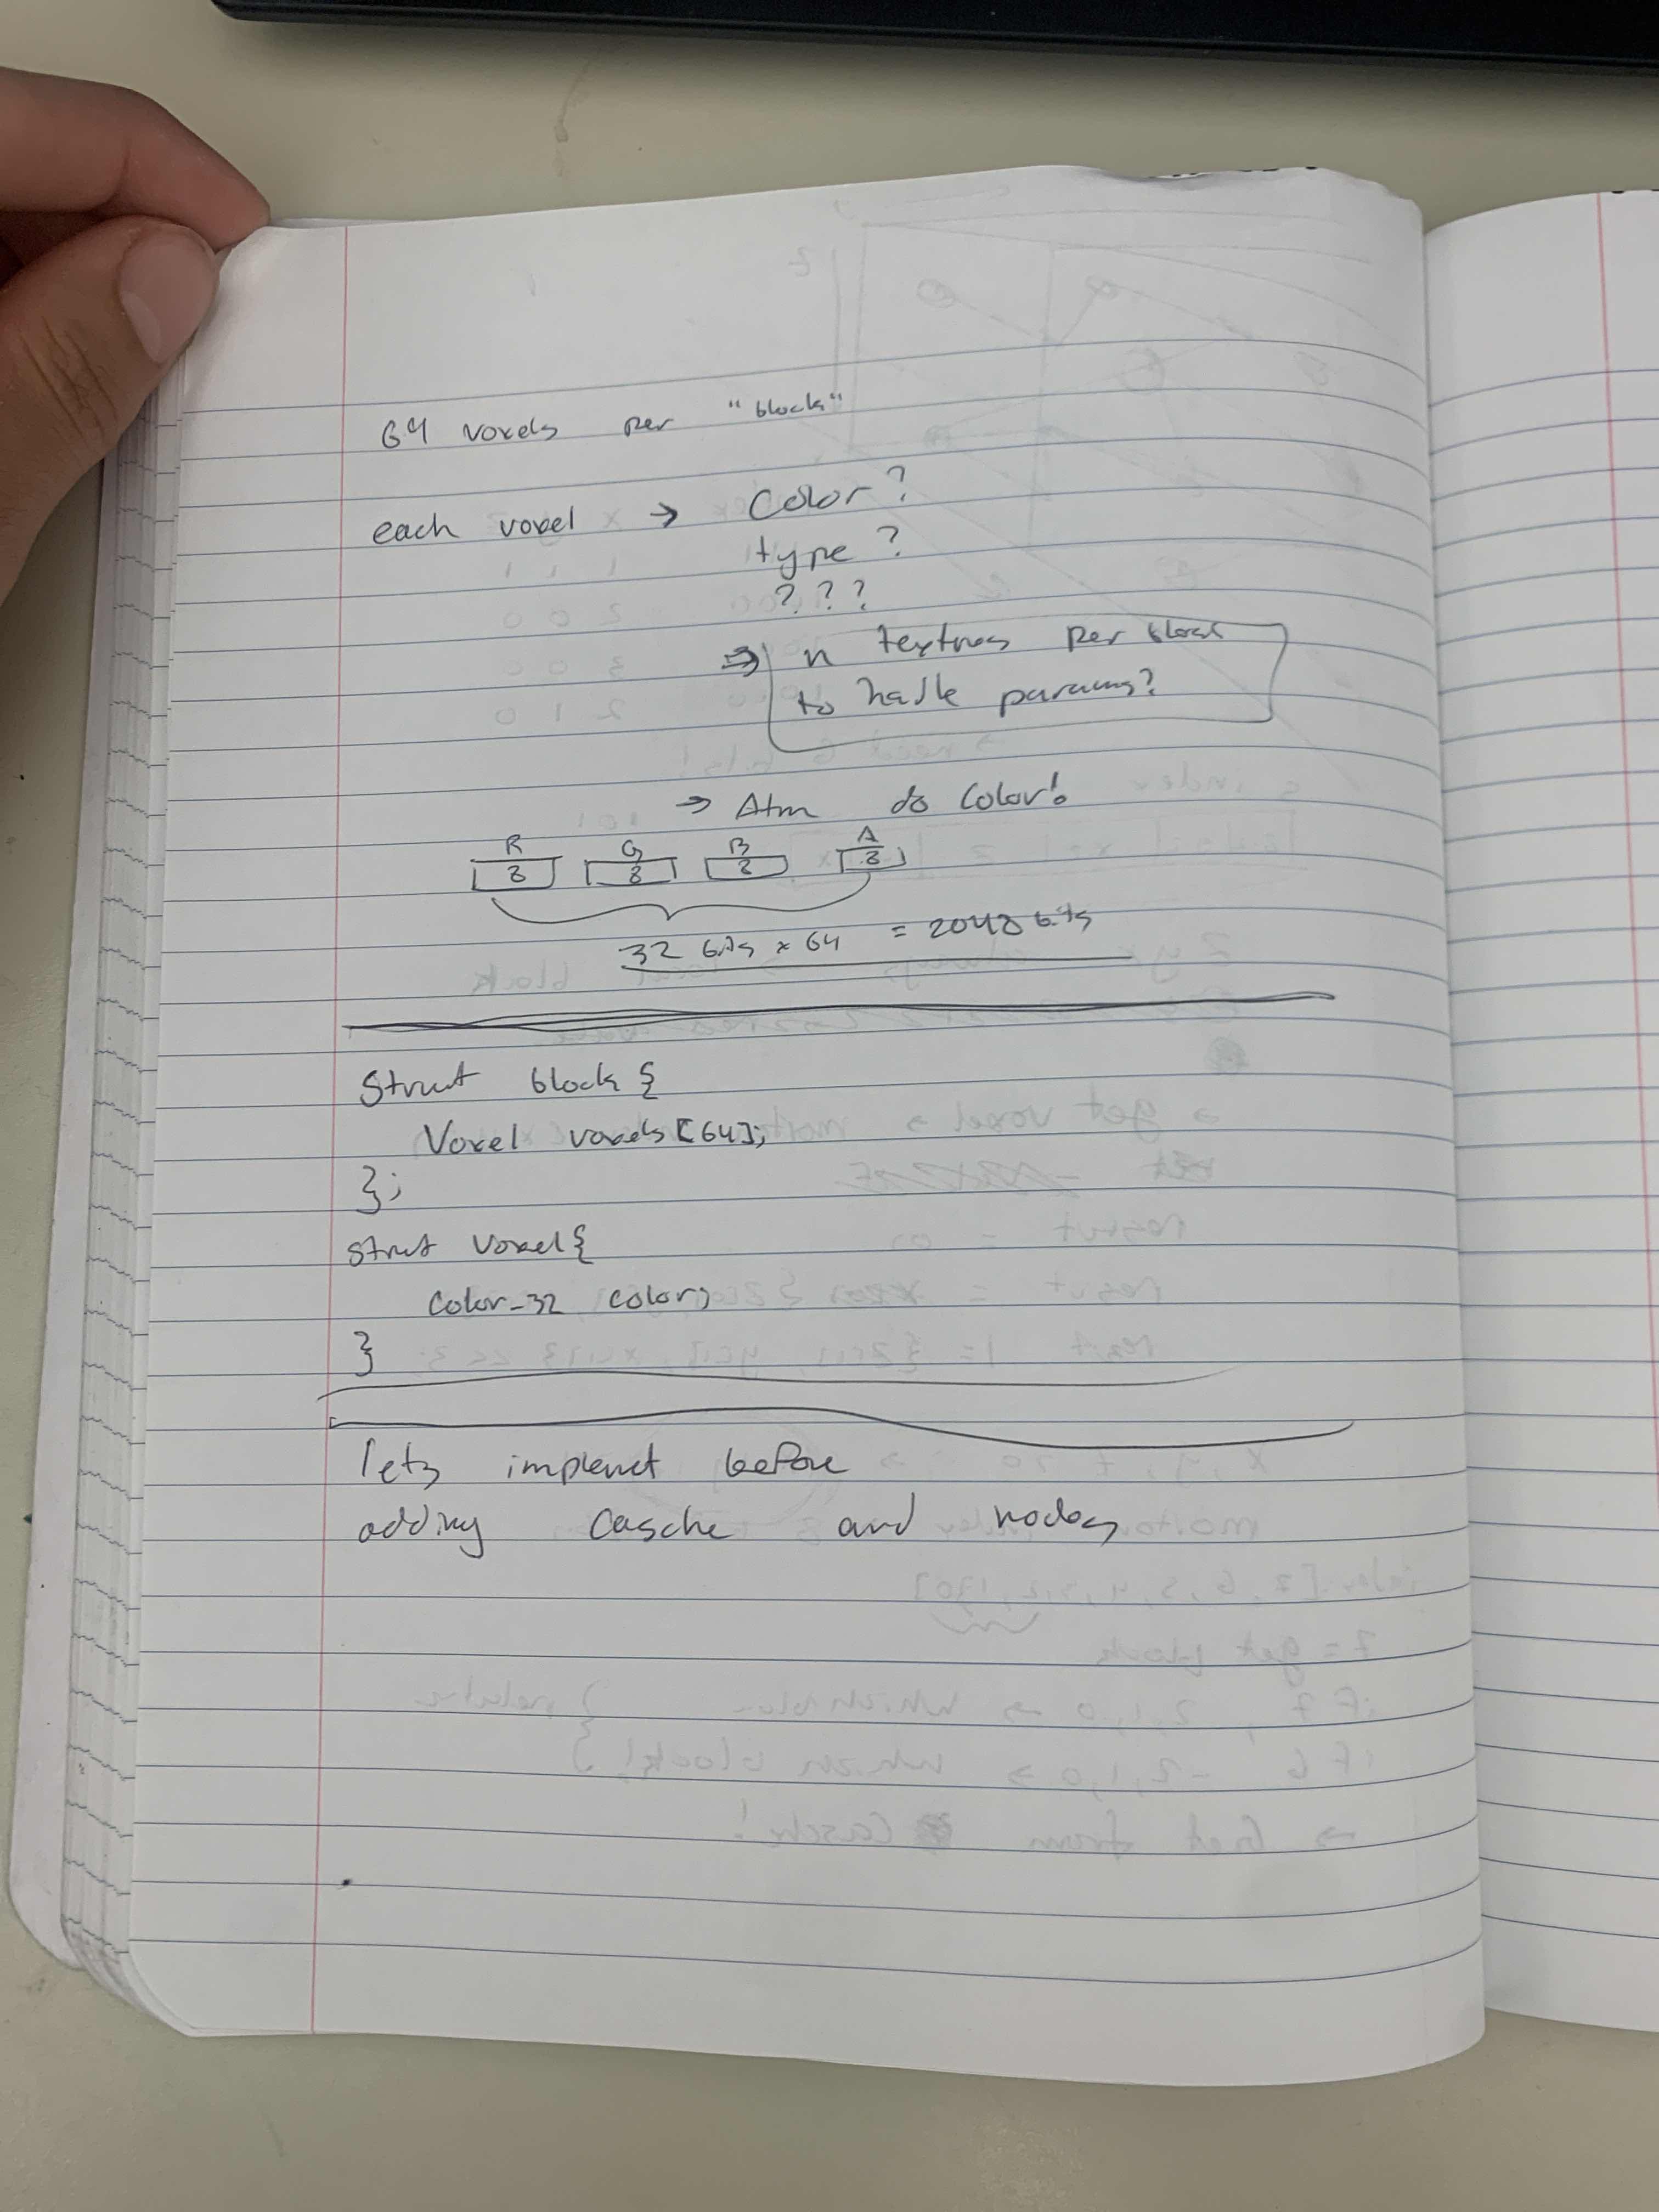 64 voxels per "block"
each voxel → Color?
type?
???
⇒ n textures per block
to hadle params?
→ Atm do Color!
R G B A
8 8 8 8
32 bits × 64 = 2048 bits
Struct block {
Voxel voxels[64];
};
struct Voxel {
Color_32 color;
}
lets implemet before
adding Casche and nodes